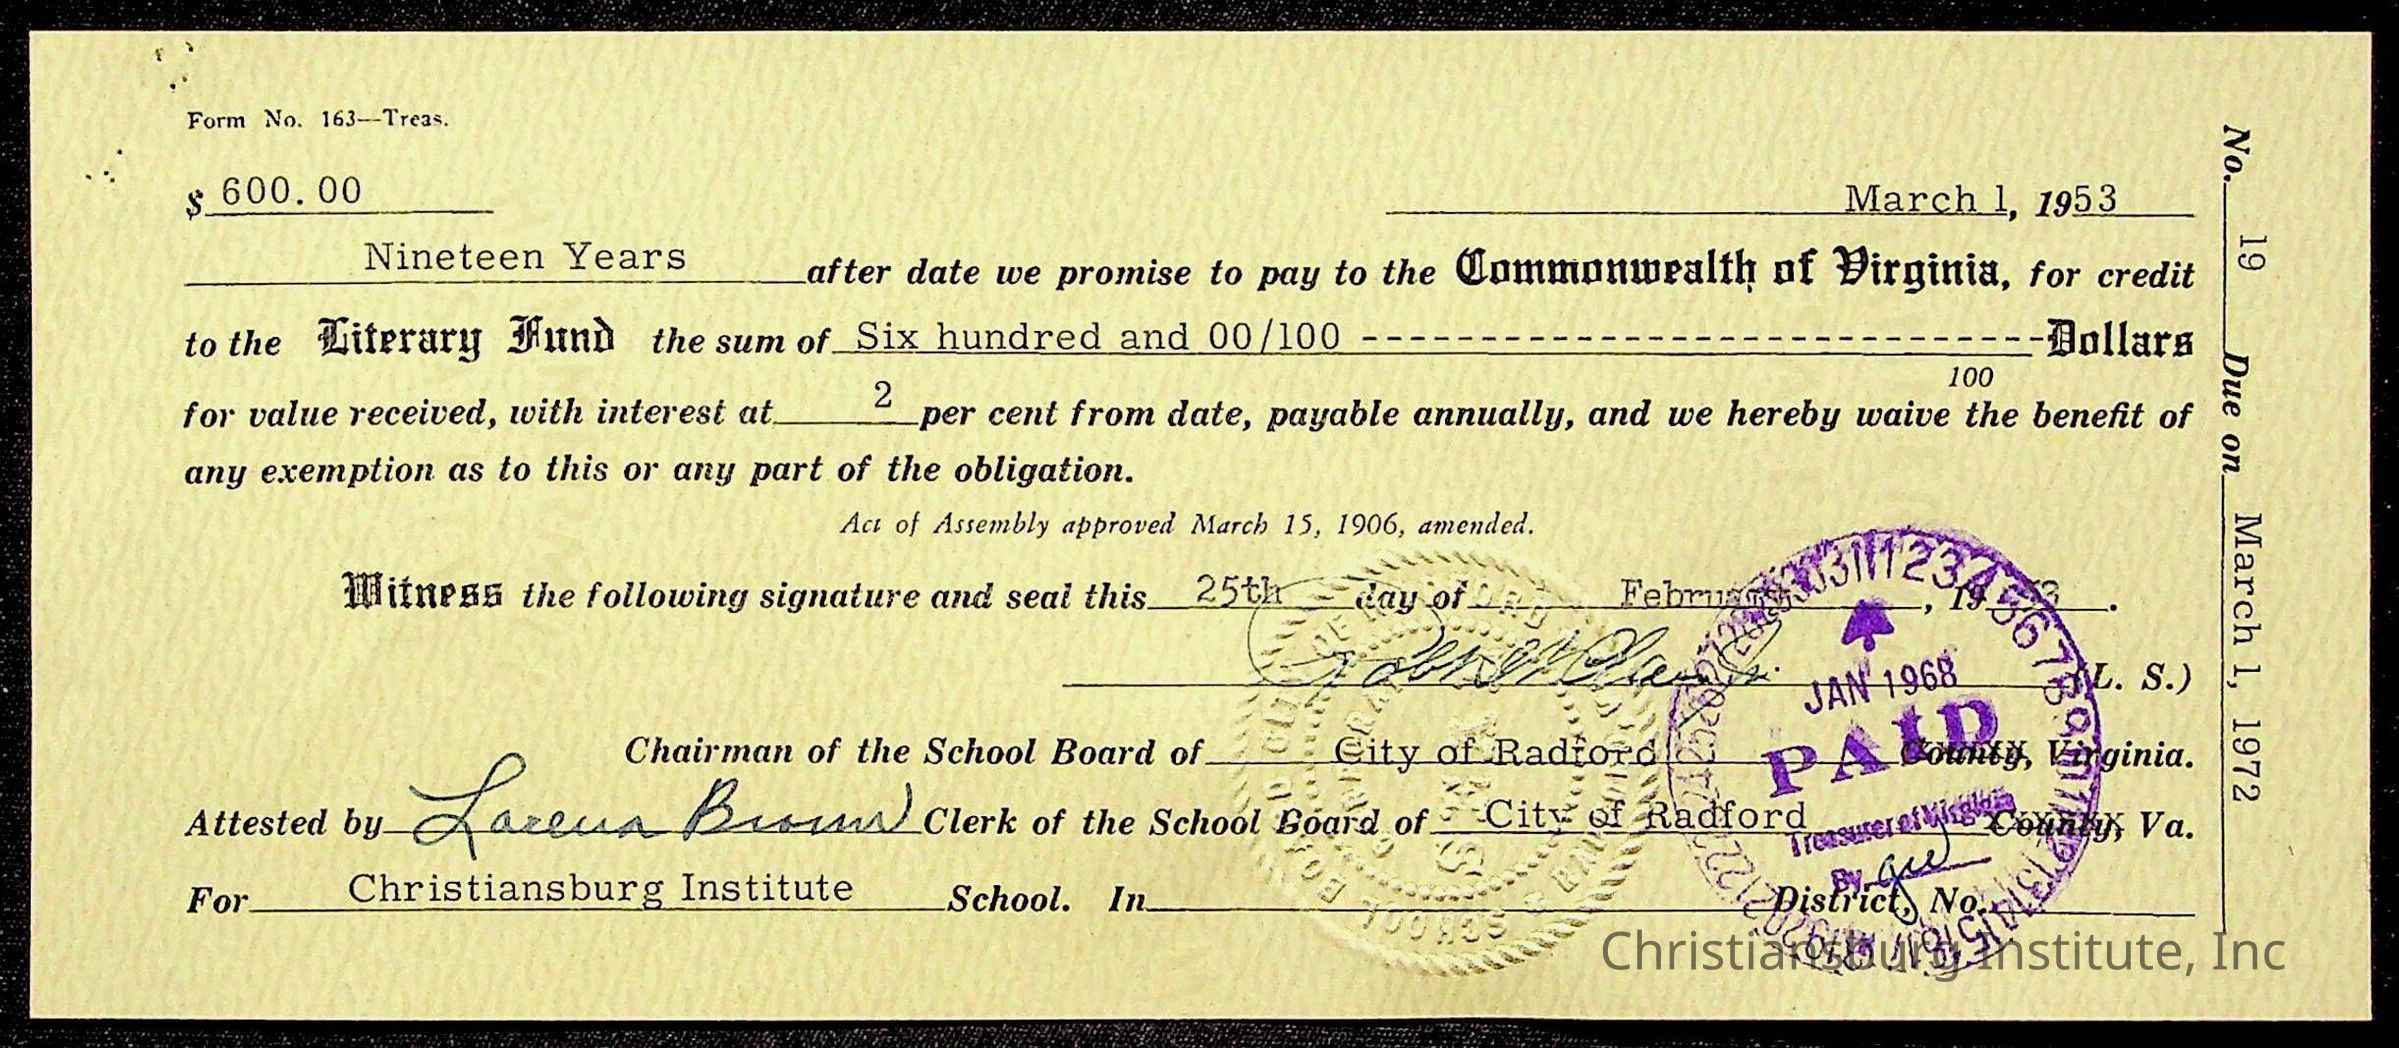 Form No. 163—Treas.
$ 600.00
March 1, 1953
Nineteen Years after date we promise to pay to the Commonwealth of Virginia, for credit
to the Literary Fund the sum of Six hundred and 00/100 ----------------------------Dollars
100
for value received, with interest at 2 per cent from date, payable annually, and we hereby waive the benefit of
any exemption as to this or any part of the obligation.
Act of Assembly approved March 15, 1906, amended.
Witness the following signature and seal this 25th day of February, 1953.
(L. S.)
Chairman of the School Board of City of Radford County, Virginia.
Attested by Lorena Brown Clerk of the School Board of City of Radford County, Va.
For Christiansburg Institute School. In District, No.
No. 19 Due on March 1, 1972
JAN 1968
PAID
Treasurer of Virginia
By
Christiansburg Institute, Inc